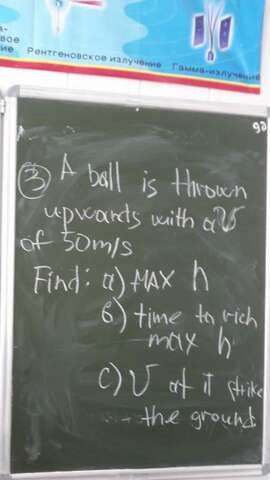 а-
вое
ние Рентгеновское излучение Гамма-излучение
③ A ball is thrown
upwards with a V
of 50m/s
Find: a) MAX h
b) time to rich
max h
c) V at it strike
the ground.